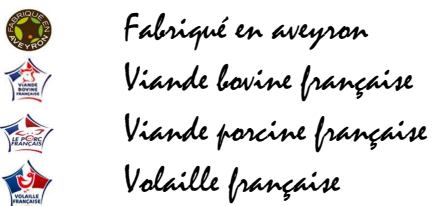 FABRIQUÉ EN AVEYRON
Fabriqué en aveyron
VIANDE
BOVINE
FRANÇAISE
Viande bovine française
LE PORC
FRANÇAIS
Viande porcine française
VOLAILLE
FRANÇAISE
Volaille française